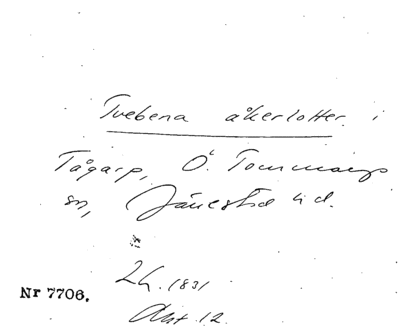 Tvebena åkerlotter i
Tågarp, Ö. Tommarps
sn, Järrestad hd.
24. 1831
Akt 12.
Nr 7706.